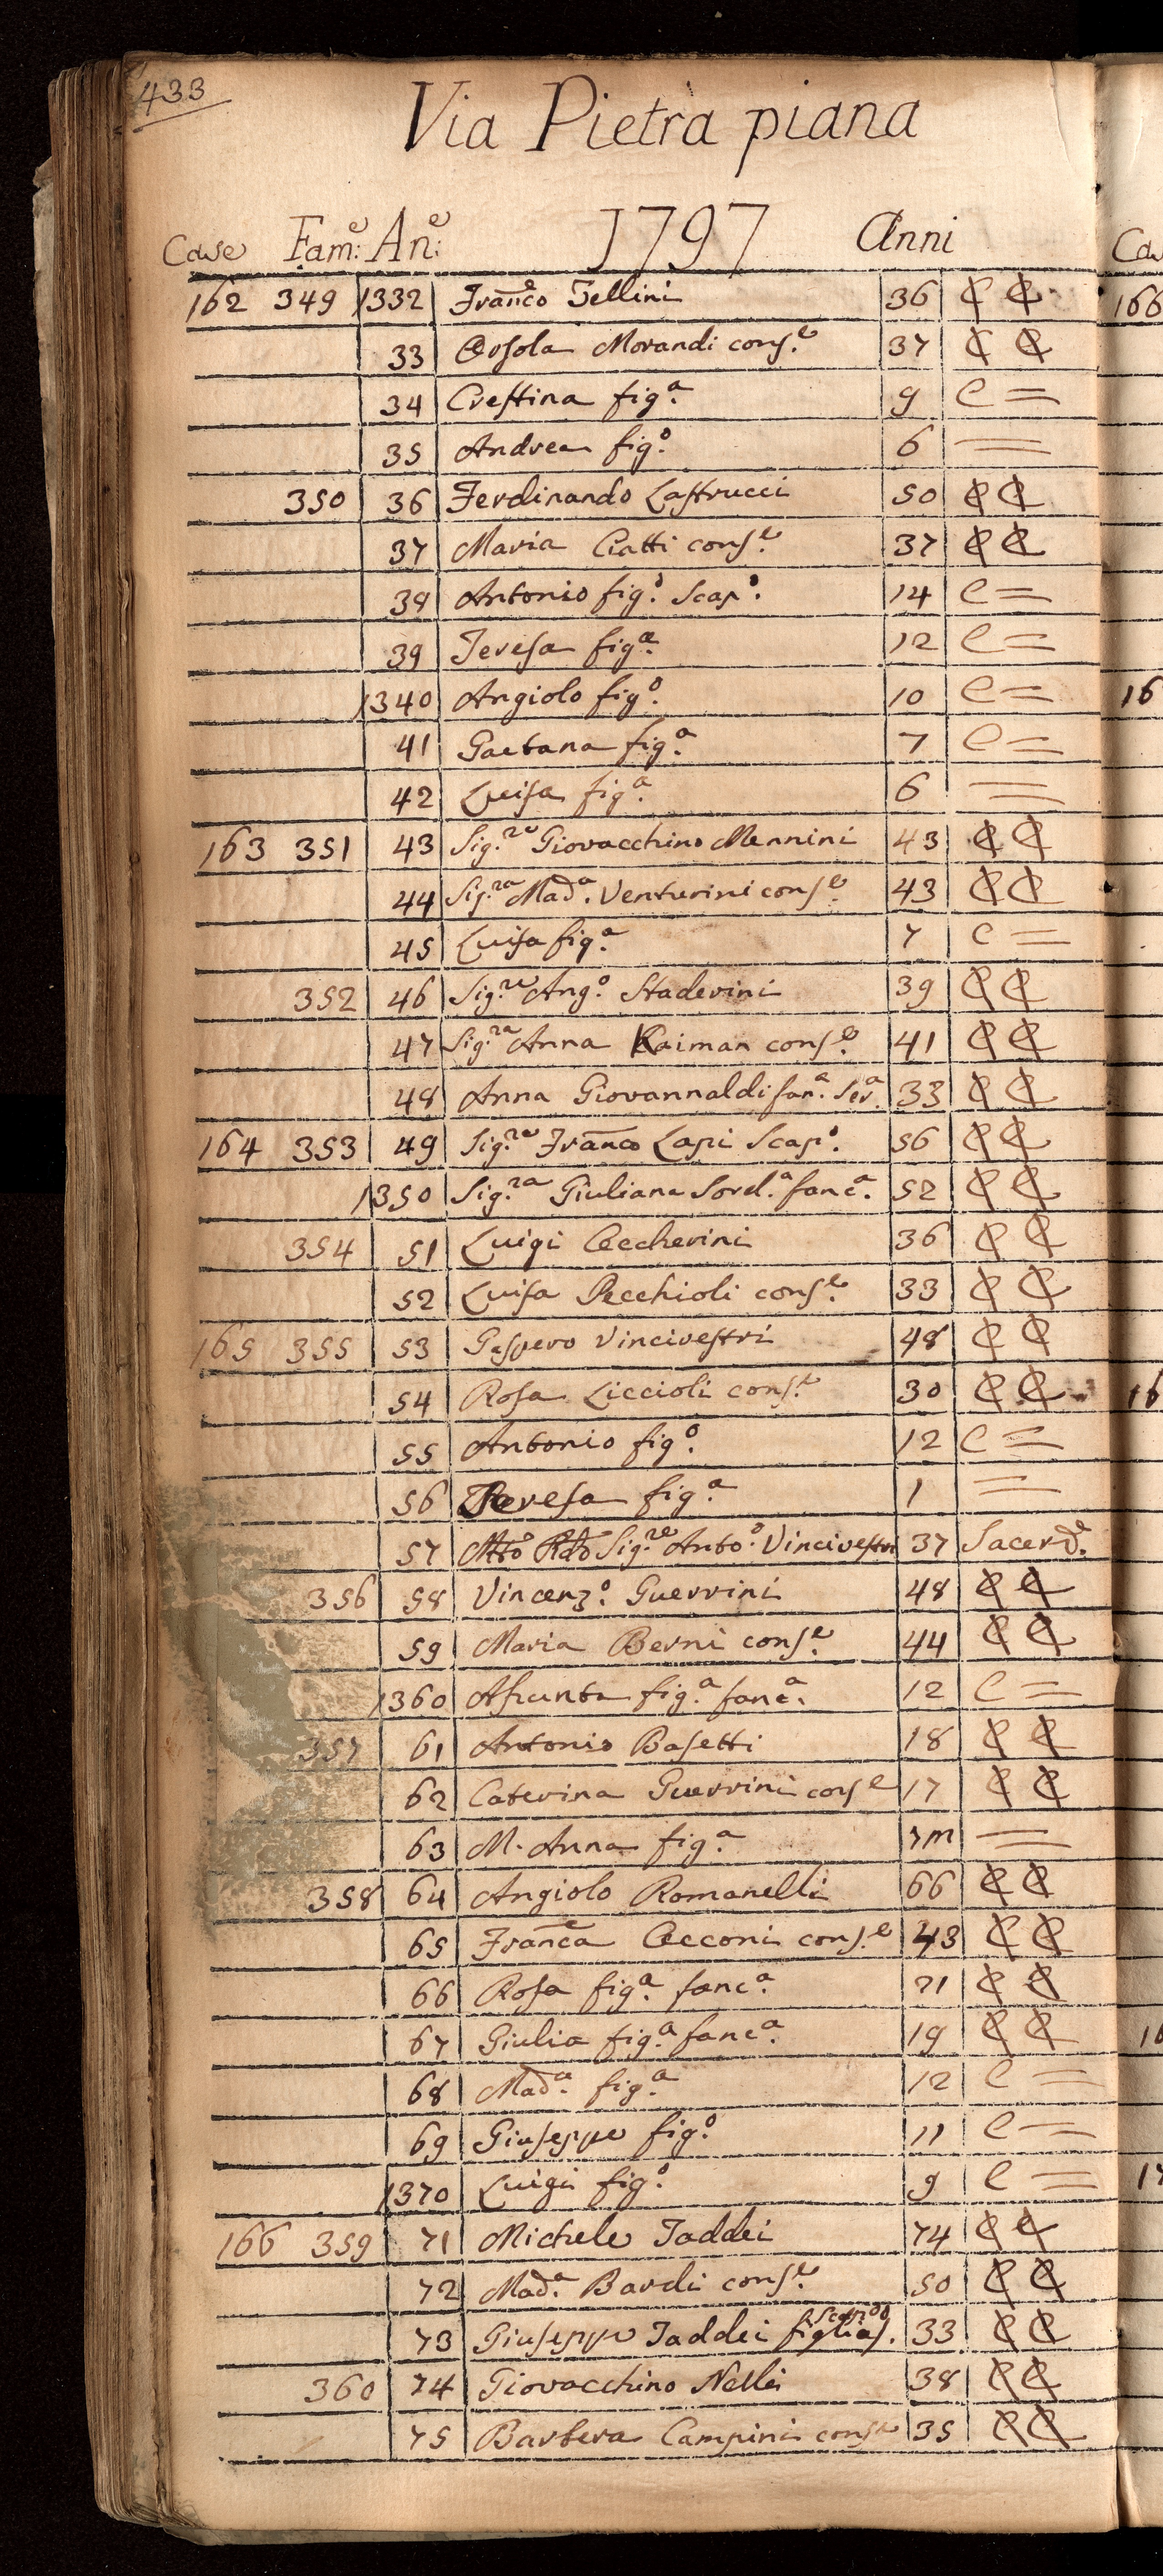 433
Via Pietra piana
Case Fam:e An:e 1797 Anni
162 349 1332 Franco Tellini 36 C C
33 Orsola Morandi cons.e 37 C C
34 Crestina fig.a 9 C =
35 Andrea fig.o 6 =
350 36 Ferdinando Lastrucci 50 C C
37 Maria Ciatti cons.e 37 C C
38 Antonio fig.o Scap.o 14 C =
39 Teresa fig.a 12 C =
1340 Angiolo fig.o 10 C =
41 Gaetana fig.a 7 C =
42 Luisa fig.a 6 =
163 351 43 Sig.re Giovacchino Mennini 43 C C
44 Sig.ra Mad.a Venturini cons.e 43 C C
45 Luisa fig.a 7 C =
352 46 Sig.re Ang.o Staderini 39 C C
47 Sig.ra Anna Kaiman cons.e 41 C C
48 Anna Giovannaldi fan.a Ser.a 33 C C
164 353 49 Sig.re Franco Lapi Scap.o 56 C C
1350 Sig.ra Giuliana Sorel.a fanc.a 52 C C
354 51 Luigi Ceccherini 36 C C
52 Luisa Pecchioli cons.e 33 C C
165 355 53 Gaspero Vincivestri 48 C C
54 Rosa Liccioli cons.e 30 C C
55 Antonio fig.o 12 C =
56 Teresa fig.a 1 =
57 Mto Rdo Sig.re Anto.o Vincivestri 37 Sacerd.e
356 58 Vincenz.o Guerrini 48 C C
59 Maria Berni cons.e 44 C C
1360 Asunta fig.a fanc.a 12 C =
357 61 Antonio Basetti 18 C C
62 Caterina Guerrini cons.e 17 C C
63 M. Anna fig.a 7m =
358 64 Angiolo Romanelli 66 C C
65 Franca Cecconi cons.e 43 C C
66 Rosa fig.a fanc.a 21 C C
67 Giulia fig.a fanc.a 19 C C
68 Mad.a fig.a 12 C =
69 Giuseppe fig.o 11 C =
1370 Luigi fig.o 9 C =
166 359 71 Michele Taddei 74 C C
72 Mad.a Bardi cons.e 50 C C
73 Giuseppe Taddei figlias. 33 C C
360 74 Giovacchino Nelli 38 C C
75 Barbera Campini cons.e 35 C C